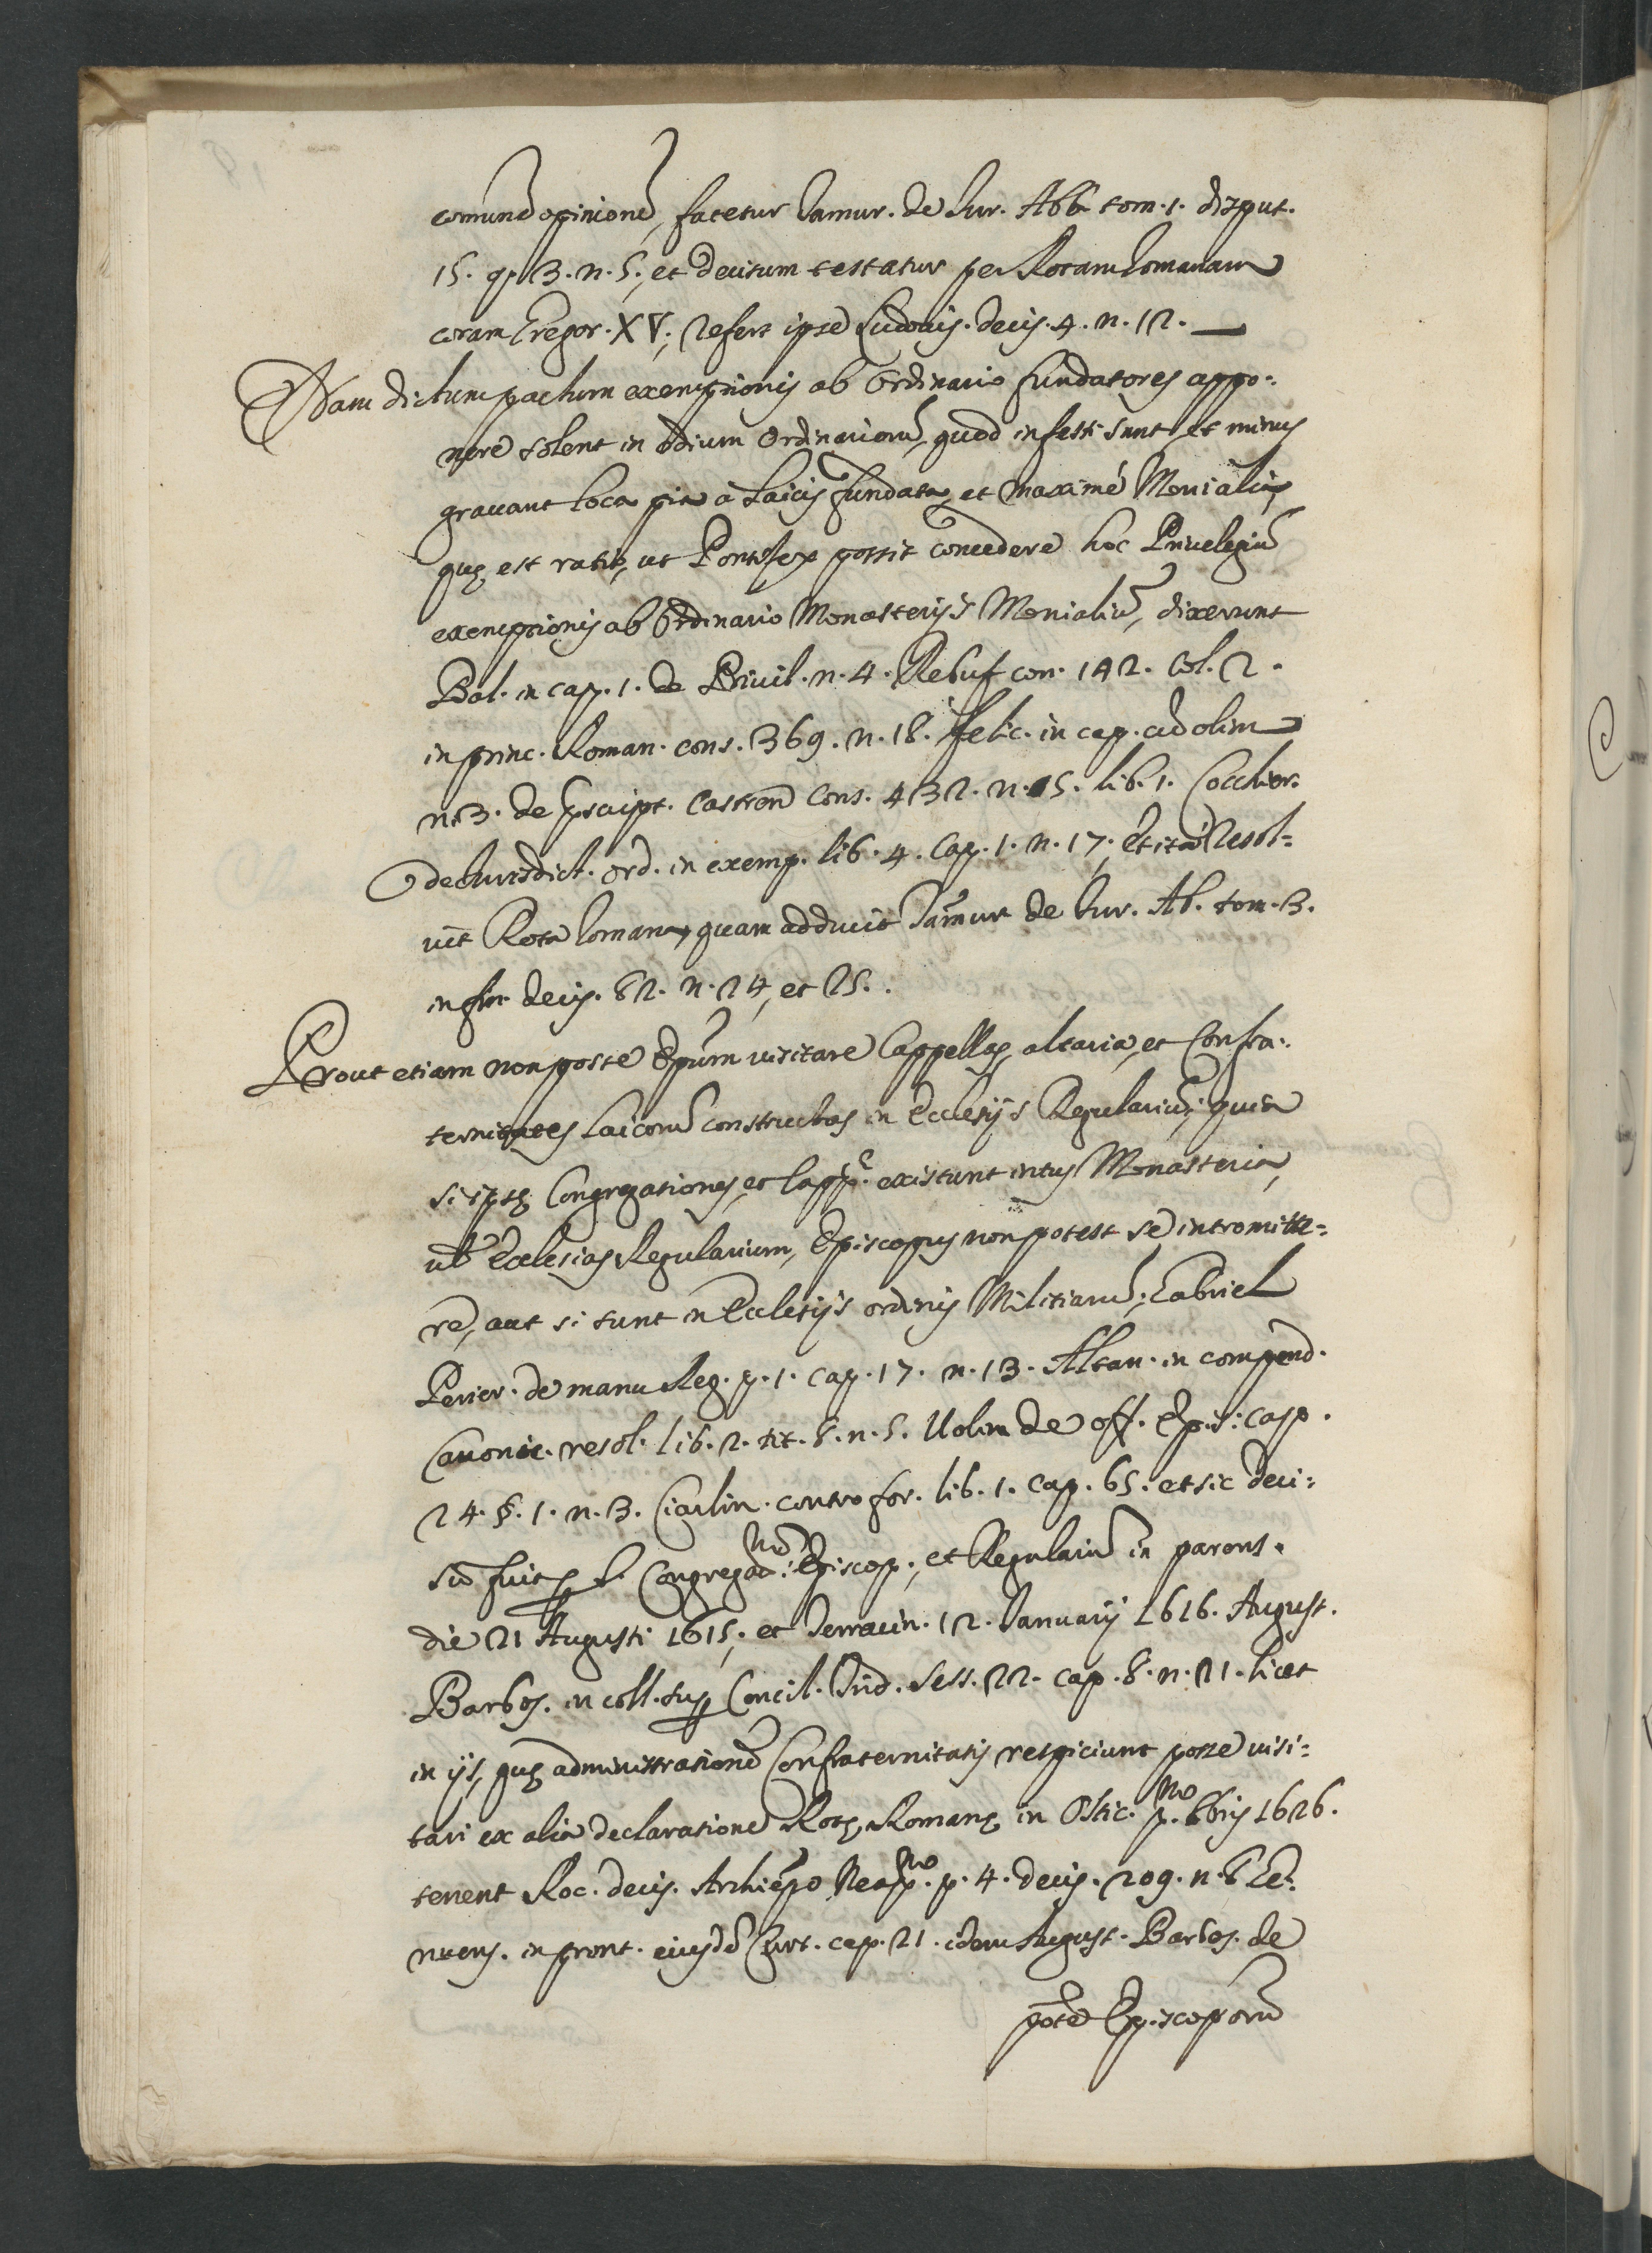 comune opinione, fatetur Tamur. de Iur. Abb. tom. 1. disput.
15. q. 13. n. 5., et decisum testatur per Rotam Romanam
coram Gregor. XV., refert ipse Ludouis. decis. 4. n. 12. —
Nam dictum pactum exemptionis ab Ordinario fundatores appo=
nere solent in odium Ordinarioru, quod infesti sunt et minus
grauant loca pia à Laicis fundata, et maximè Monialiu,
quę est ratio, ut Pontifex possit concedere hoc Priuelegiu
exemptionis ab Ordinario Monasterijs Monialiu, dixerunt
Bal. in cap. 1. de Priuil. n. 4. Rebuf. con. 142. Col. 2.
in princ. Roman. cons. 369. n. 18. Felic. in cap. cu olim
n. 3. de prscript. Castren Cons. 432. n. 15. lib. 1. Cocchier.
de Iurisdict. ord. in exemp. lib. 4. Cap. 1. n. 17., et ita resol=
uit Rota Romana, quam adducit Tamur de Iur. Ab. tom. 3.
in fin. decis. 82. n. 24, et 25.
Prout etiam non posse Epum uisitare Cappellas, altaria, et Confra=
ternitates Laicoru constructas in Ecclesijs Regulariu, quia
si istę Congregationes, et Capp. existunt intus Monasteria,
uel Ecclesias Regularium, Episcopus non potest se intromitte=
re, aut si sunt in Ecclesijs ordinis Militiaru, Gabriel
Perier. de manu Reg. p. 1. cap. 17. n. 13. Altan. in compend.
Canonic. resol. lib. 2. tit. 8. n. 5. Ugolin de off. Epis: cap.
24. §. 1. n. 3. Ciarlin. contro for. lib. 1. cap. 65. et sic deci=
su fuit p S. Congregat.ne Episcop., et Regulariu in parens.
die 21 Augusti 1615., et Terracin. 12. Ianuarij 1616. August.
Barbos. in coll. sup Concil. Trid. sess. 22. cap. 8. n. 21. licet
in ijs, quę administratione Confraternitatis respiciunt posse uisi=
tari ex alia declaratione Rotę Romanę in Ostie. p.mo 8bris 1626.
tenent Roc. decis. Archiepo Neap.no p. 4. decis. 209. n. 6 Ge=
nuens. in pront. eiusde Curt. cap. 21. idem August. Barbos. de
potte Episcoporu